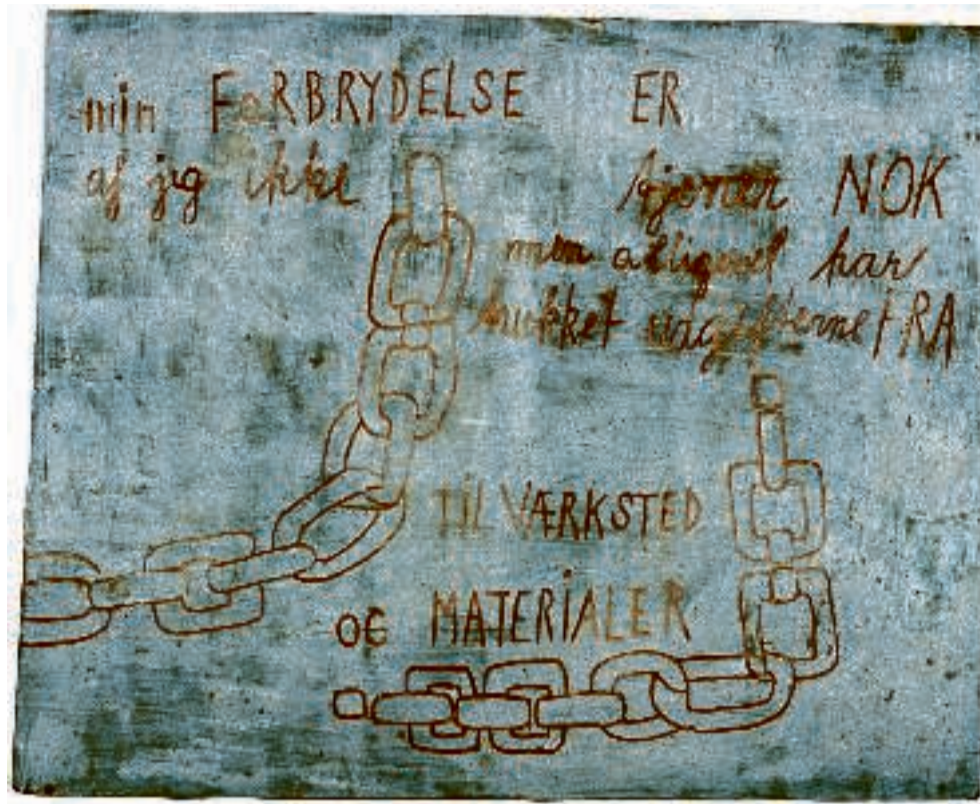 min FORBRYDELSE ER
at jeg ikke tjener NOK
men alligevel har
trukket udgifterne FRA
TIL VÆRKSTED
OG MATERIALER